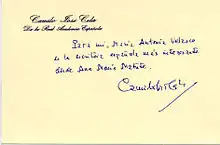 Camilo José Cela
De la Real Academia Española
Para mí, María Antonia Velasco
es la escritora española más interesante
desde Ana María Matute.
Camilo José Cela